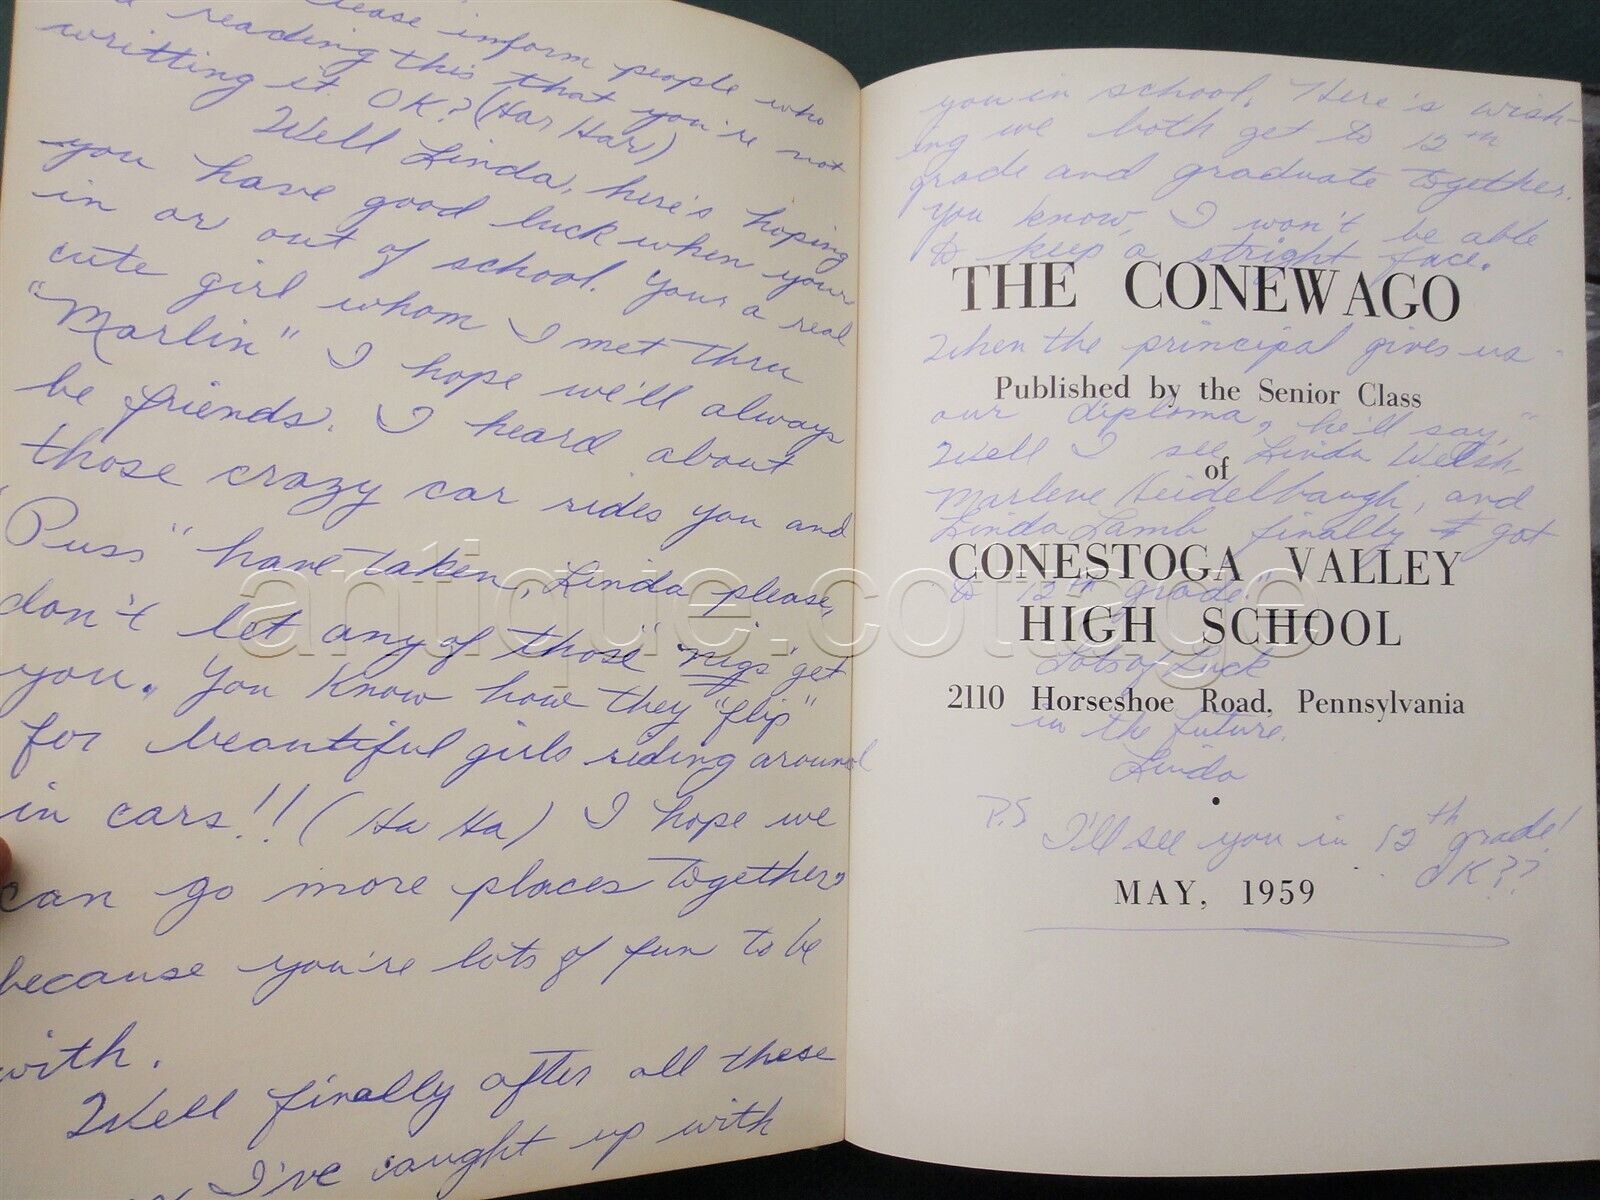 please inform people who
reading this that you're not
writting it OK? (Har Har)
Well Linda, here's hoping
you have good luck when your
in or out of school. Your a real
cute girl whom I met thru
"Marlin" I hope we'll always
be friends. I heard about
those crazy car rides you and
"Puss" have taken, Linda please,
don't let any of those "nigs" get
you. You know how they "flip"
for beautiful girls riding around
in cars!! (Ha Ha) I hope we
can go more places together
because you're lots of fun to be
with.
Well finally after all these
I've caught up with
you in school. Here's wish-
ing we both get to 12th
grade and graduate together.
You know, I won't be able
to keep a stright face.
THE CONEWAGO
When the principal gives us
Published by the Senior Class
our diploma, he'll say,"
Well I see Linda Welsh,
of
Marlene Heidelbaugh, and
Linda Lamb finally got
CONESTOGA VALLEY
to 12th grade!"
HIGH SCHOOL
Lots of Luck
2110 Horseshoe Road, Pennsylvania
in the future.
Linda
P.S I'll see you in 12th grade!
OK??
MAY, 1959
antique.cottage